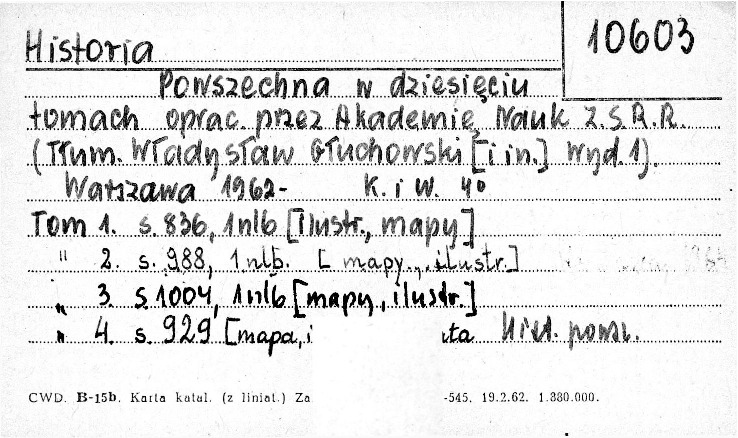 Historia
10603
Powszechna w dziesięciu
tomach oprac. przez Akademię Nauk Z.S.R.R.
(Tłum. Władysław Głuchowski [i in.] Wyd. 1).
Warszawa 1962- K. i W. 4°
Tom 1. s. 836, 1 nlb [ilustr., mapy]
" 2. s. 988, 1 nlb. [mapy., ilustr.]
" 3. s 1004, 1 nlb [mapy, ilustr.]
" 4. s. 929 [mapa, i ta Hist. pow.
CWD. B-15b. Karta katal. (z liniat.) Za -545. 19.2.62. 1.880.000.